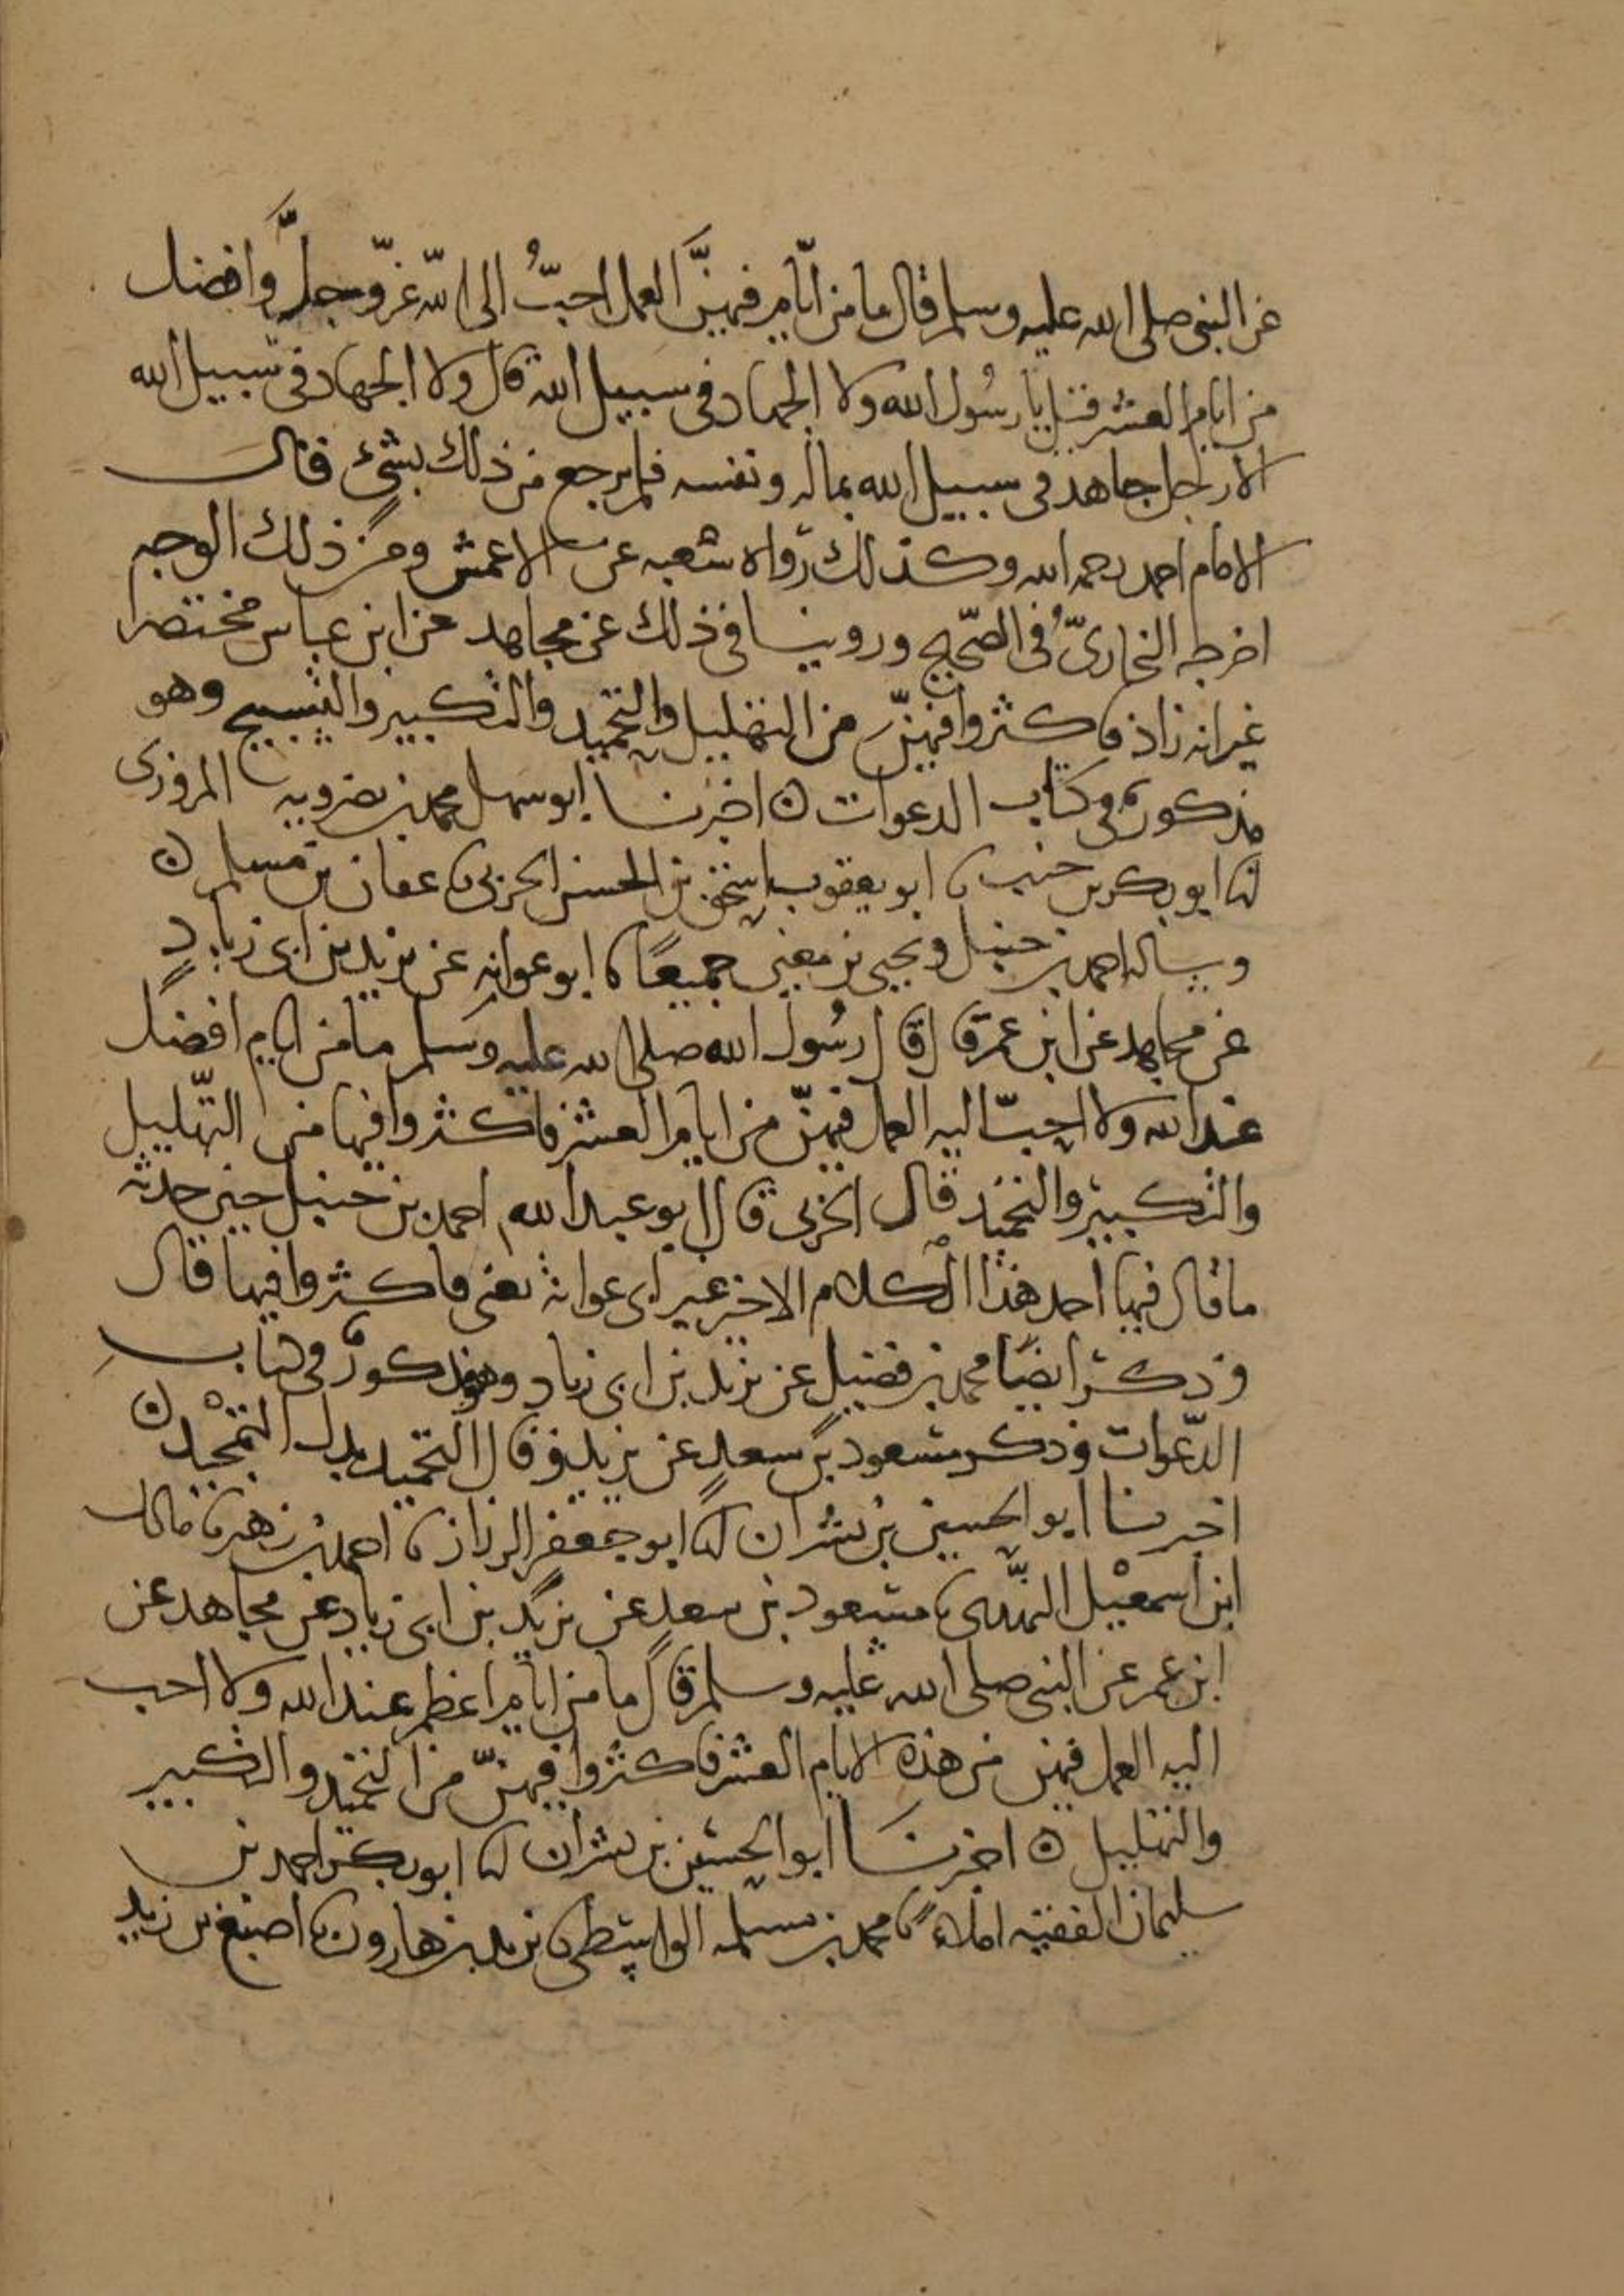 عن النبي صلى الله عليه وسلم قال ما من ايّام فيهنَّ العمل احبُّ الى الله عزّ وجلَّ وافضل
من ايام العشر قيل يا رسُول الله ولا الجهاد في سبيل الله قال ولا الجهاد في سبيل الله
الا رجل جاهد في سبيل الله بماله ونفسه فلم يرجع من ذلك بشيء قال
الامام احمد رحمه الله وكذلك رواه شعبه عن الاعمش ومن ذلك الوجه
اخرجه البخاريّ في الصّحيح وروينا في ذلك عن مجاهد عن ابن عباس مختصرا
غير انه زاد فاكثروا فيهنّ من التهليل والتحميد والتكبير والتسبيح وهو
مذكور في كتاب الدعوات ٥ اخبرنا ابو سهل محمد بن نصرويه المروزي
انا ابو بكر بن خنب نا ابو يعقوب اسحق بن الحسن الحربي نا عفان بن مسلم ٥
وساله احمد بن حنبل ويحيى بن معين جميعًا نا ابو عوانه عن يزيد بن ابي زيادٍ
عن مجاهد عن ابن عمر قال قال رسُول الله صلى الله عليه وسلم ما من ايام افضل
عند الله ولا احبّ اليه العمل فيهنّ من ايام العشر فاكثروا فيها من التّهليل
والتكبير والتحميد قال الحربي قال ابو عبد الله احمد بن حنبل حين حدثه
ما قال فيها احد هذا الكلام الاخر غير ابي عوانة يعني فاكثروا فيها قال
وذكر ايضًا محمد بن فضيل عن يزيد بن ابي زياد وهو مذكورٌ في كتاب
الدّعوات وذكر مسعود بن سعدٍ عن يزيد وقال التحميد بدل التمجيد ٥
اخبرنا ابو الحسين بن بشران انا ابو جعفر الرزاز نا احمد بن زهير نا مالك
ابن اسمعيل النهدى نا مسعود بن سعدٍ عن يزيد بن ابي زياد عن مجاهد عن
ابن عمر عن النبي صلى الله عليه وسلم قال ما من ايام اعظم عند الله ولا احب
اليه العمل فيهن من هذه الايام العشر فاكثروا فيهنّ من التحميد والتكبير
والتهليل ٥ اخبرنا ابو الحسين بن بشران انا ابو بكر احمد بن
سليمان الفقيه املاءً نا محمد بن مسلمه الواسطي نا يزيد بن هارون نا اصبغ بن زيد